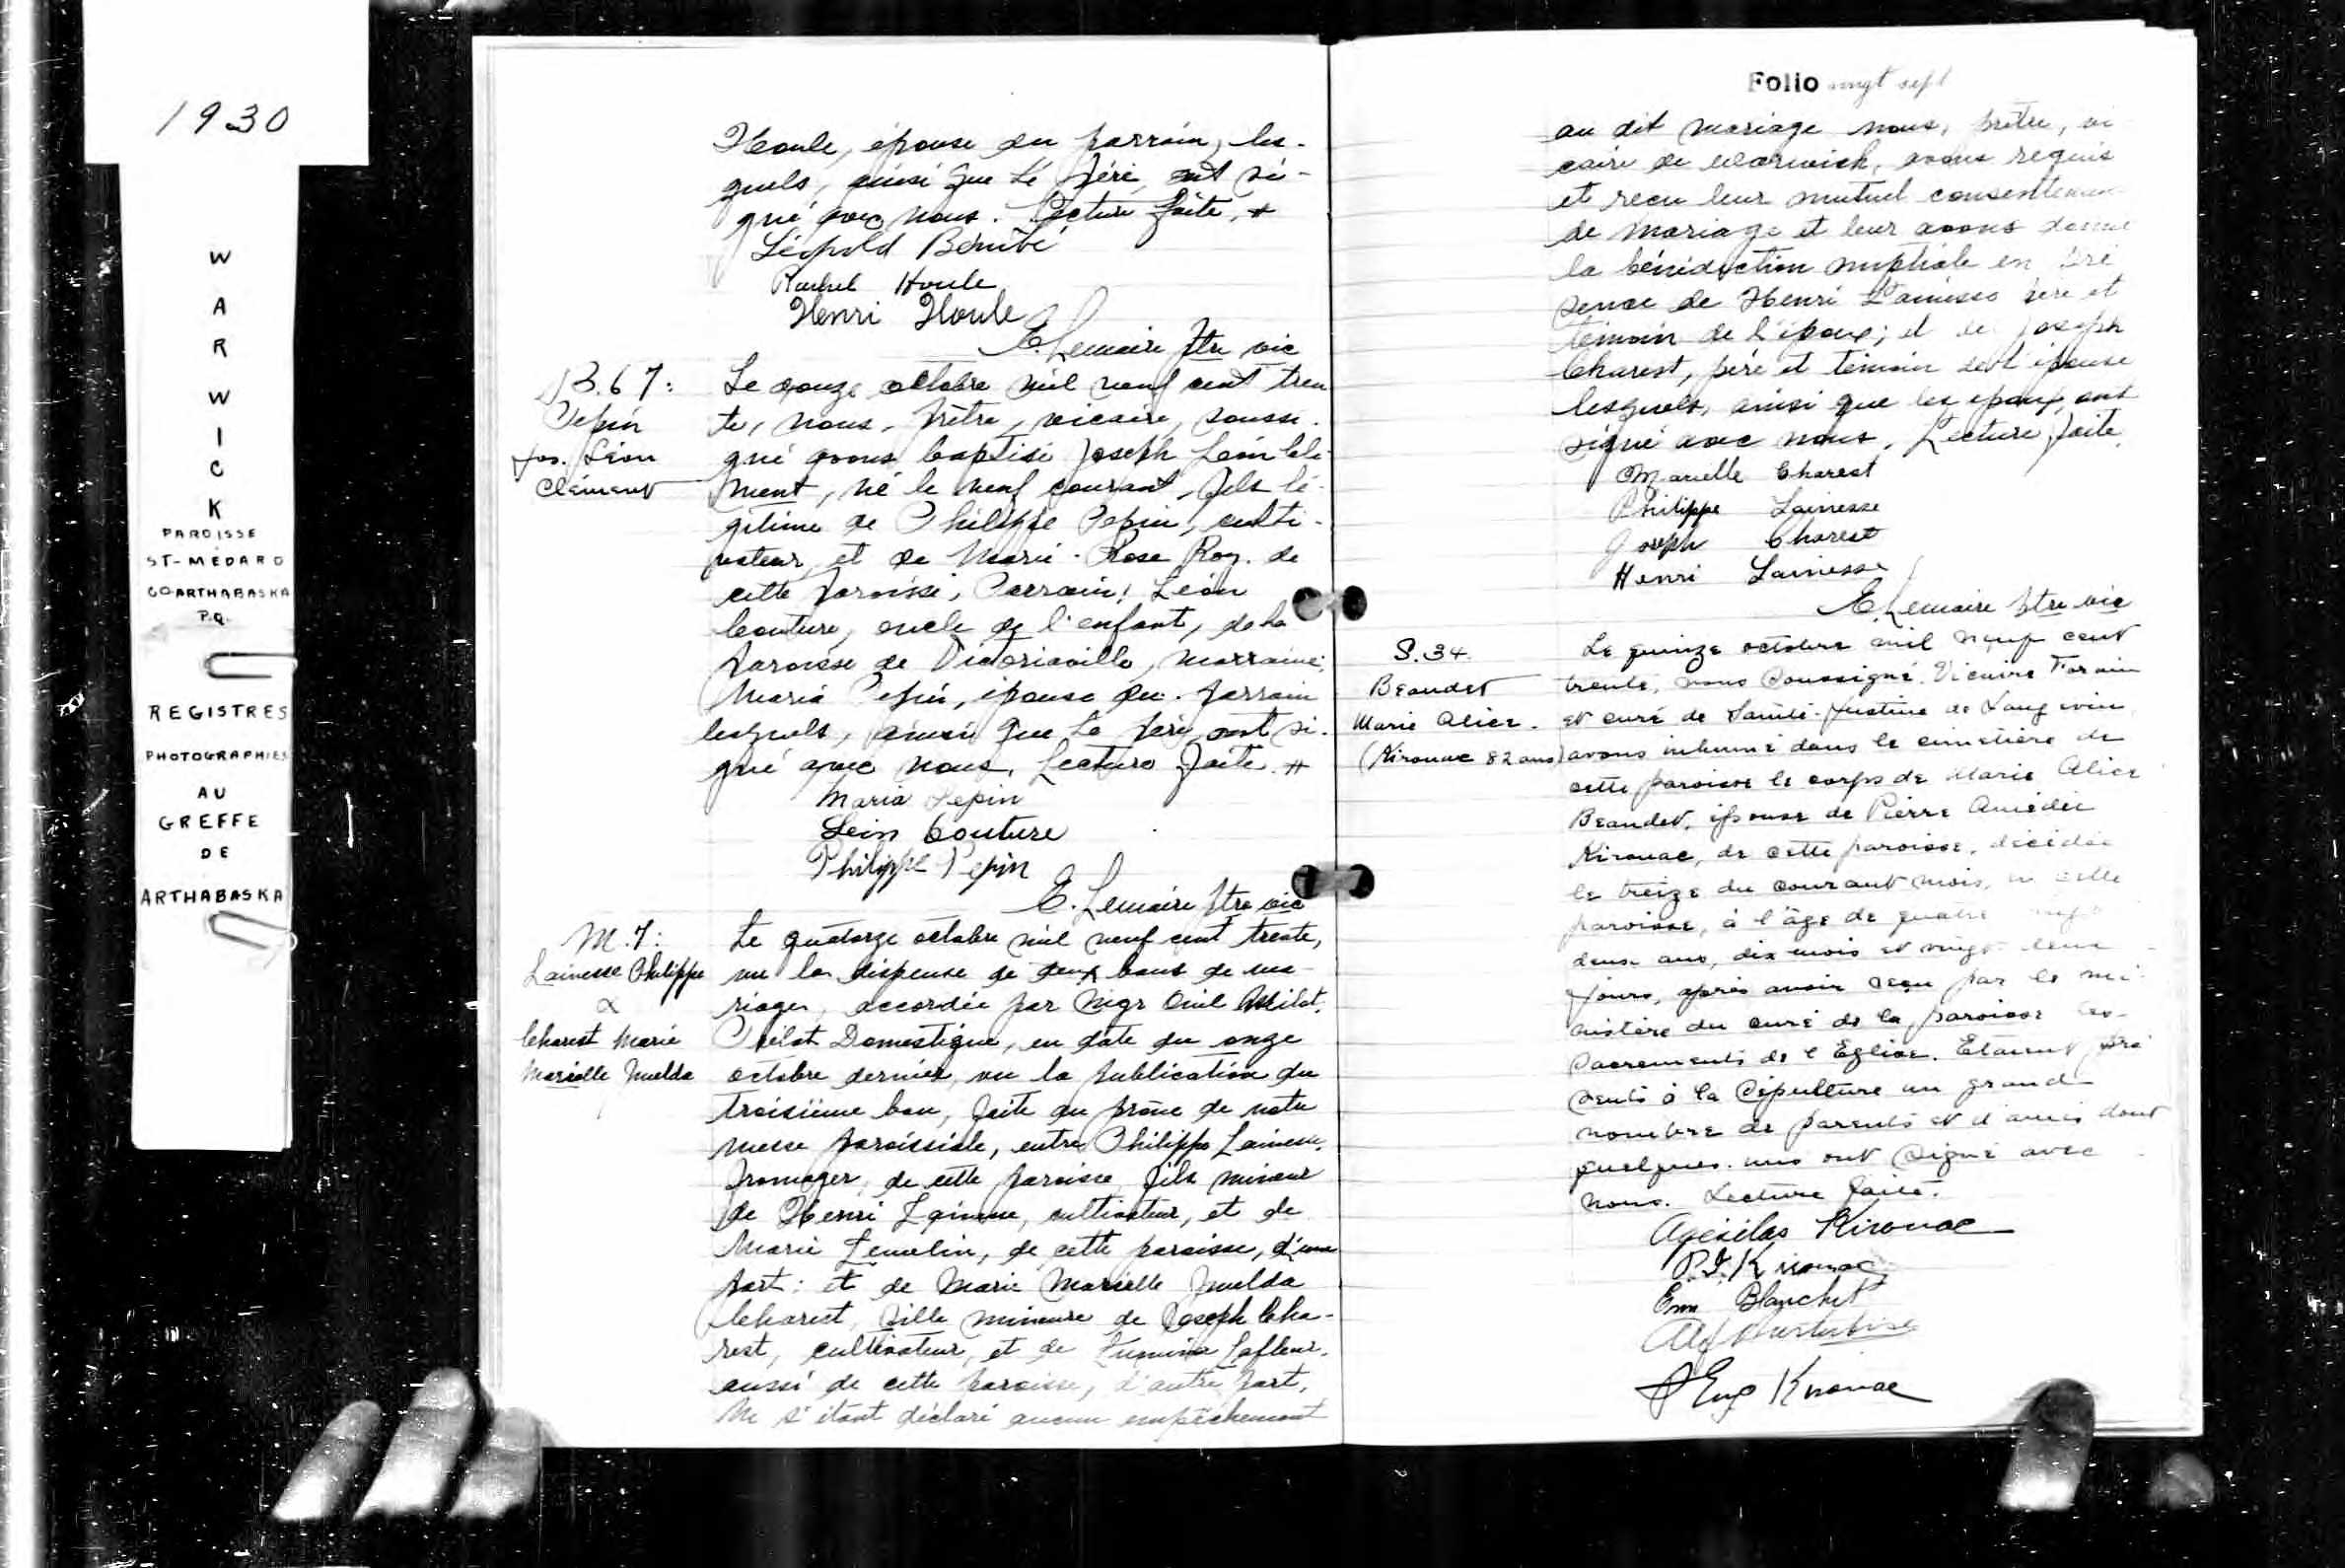 1930
W
A
R
W
I
C
K
PAROISSE
ST-MÉDARD
CO ARTHABASKA
P.Q.
REGISTRES
PHOTOGRAPHIES
AU
GREFFE
DE
ARTHABASKA
Houle, épouse du parrain, les-
quels, ainsi que le père, ont si-
gné avec nous. Lecture faite.
Léopold Bérubé
Rachel Houle
Henri Houle
E. Lemaire ptre vic
B.67:
Pepin
Jos. Léon
Clément
Le douze octobre mil neuf cent tren
te, nous, prêtre, vicaire, soussi-
gné avons baptisé Joseph Léon Clé-
ment, né le neuf courant, fils lé-
gitime de Philippe Pepin, culti-
vateur, et de Marie-Rose Roy, de
cette paroisse. Parrain: Léon
Couture, oncle de l'enfant, de la
paroisse de Victoriaville, marraine:
Maria Pepin, épouse du parrain
lesquels, ainsi que le père, ont si-
gné avec nous. Lecture faite.
Maria Pepin
Léon Couture
Philippe Pepin
E. Lemaire ptre vic
M.7:
Lainesse Philippe
&
Charest Marie
Marielle Imelda
Le quatorze octobre mil neuf cent trente,
vu la dispense de deux bans de ma-
riage, accordée par Mgr Milot,
Prélat Domestique, en date du onze
octobre dernier, vu la publication du
troisième ban, faite au prône de notre
messe paroissiale, entre Philippe Lainesse,
fromager, de cette paroisse, fils mineur
de Henri Lainesse, cultivateur, et de
Marie Lemelin, de cette paroisse, d'une
part: et de Marie Marielle Imelda
Charest, fille mineure de Joseph Cha-
rest, cultivateur, et de Lumina Lafleur,
aussi de cette paroisse, d'autre part,
Ne s'étant déclaré aucun empêchement
Folio vingt sept
au dit mariage nous, prêtre, vi
caire de Warwick, avons requis
et reçu leur mutuel consentement
de mariage et leur avons donné
la bénédiction nuptiale en pré
sence de Henri Lainesse père et
témoin de l'époux; et de Joseph
Charest, père et témoin de l'épouse
lesquels, ainsi que les époux, ont
signé avec nous. Lecture faite.
Marielle Charest
Philippe Lainesse
Joseph Charest
Henri Lainesse
E. Lemaire ptre vic
S.34.
Beaudet
Marie Alice.
(Kirouac 82 ans)
Le quinze octobre mil neuf cent
trente, nous soussigné, Vicaire Forain
et curé de Sainte-Justine de Langevin
avons inhumé dans le cimetière de
cette paroisse le corps de Marie Alice
Beaudet, épouse de Pierre Amédée
Kirouac, de cette paroisse, décédée
le treize du courant mois, en cette
paroisse, à l'âge de quatre vingt
deux ans, dix mois et vingt deux
jours, après avoir reçu par le mi-
nistère du curé de la paroisse les
Sacrements de l'Eglise. Etaient pré
sents à la sépulture un grand
nombre de parents et d'amis dont
quelques-uns ont signé avec
nous. Lecture faite.
Agésilas Kirouac
P.J. Kirouac
Em Blanchet
Alf
Eug Kirouac